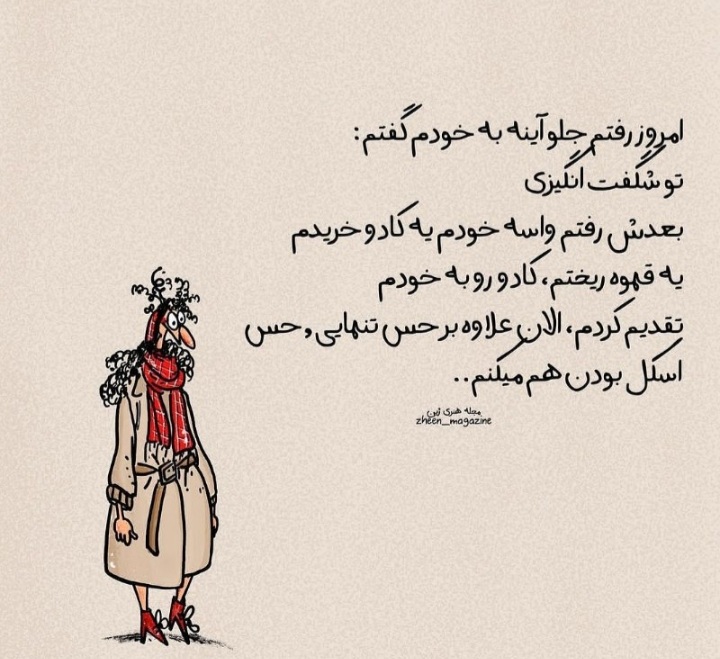 امروز رفتم جلو آینه به خودم گفتم:
تو شگفت انگیزی
بعدش رفتم واسه خودم یه کادو خریدم
یه قهوه ریختم، کادو رو به خودم
تقدیم کردم، الان علاوه بر حس تنهایی , حس
اسکل بودن هم میکنم..
مجله هنری ژین
zheen_magazine